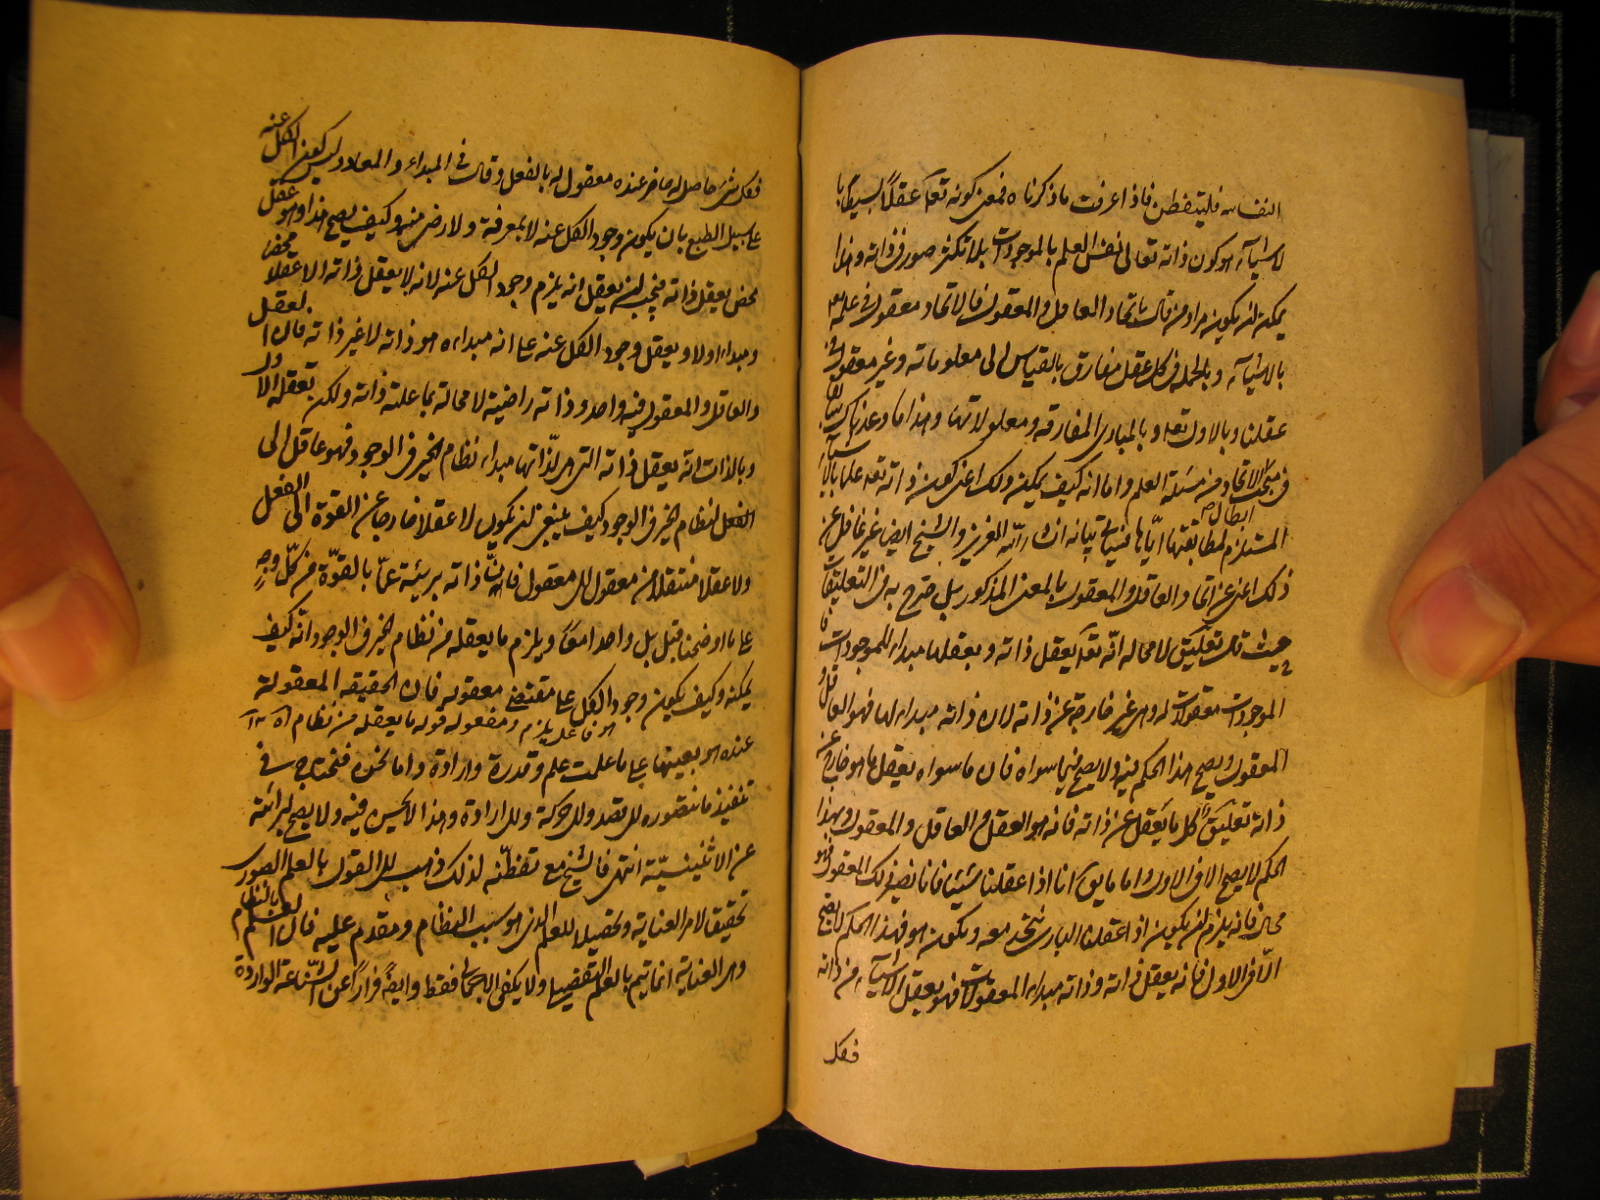 النفاسه فليتفطن فاذا عرفت ما ذكرناه فمعنى كونه تعه عقلاً بسيطاً
لاشيآء هو كون ذاته تعالى نفس العلم بالموجودات بلا تكثر صور فى ذاته وهذا
يمكن ان يكون مراد من قال باتحاد العاقل والمعقول فالاتحاد معقول فى علمه تعه
بالاشيآء وبالجمله فى كل عقل مفارق بالقياس الى معلوماته وغير معقول فى
عقلنا وبالاول تعه وبالمبادى المفارقه ومعلولاتها وهذا ما وعدناك بيانه
فى مبحث الاتحاد من مسئلة العلم واما انه كيف يمكن ذلك اعنى كون ذاته تعه علما بالاشيآء
ابطال
المستلزم لمطابقتها اياها فسياتى بيانه انشاء الله العزيز والشيخ ايضا غير غافل عن
ذلك اعنى عن اتحاد العاقل والمعقول بالمعنى المذكور بل صرح به فى التعليقات
حيث قال تعليق لا محاله انه تعه يعقل ذاته ويعقلها مبداء للموجودات فا
الموجودات معقولات له وهى غير خارجة عن ذاته لان ذاته مبداء لها فهو العاقل و
المعقول ويصح هذا الحكم فيه ولا يصح فيما سواه فان ما سواه يعقل ما هو خارج عن
ذاته تعليق كل ما يعقل عن ذاته فانه هو العقل والعاقل والمعقول وبهذا
الحكم لا يصح الا فى الاول واما ما يق انا اذا عقلنا شيئا فانا نصير ذلك المعقول فهو
محال فانه يلزم ان يكون اذا عقلنا البارى نتحد معه ونكون هو فهذا الحكم لا يصح
الا فى الاول فانه يعقل ذاته وذاته مبداء المعقولات فهو يعقل الاشيآء من ذاته
فكل
فكل شئ حاصل له حاضر عنده معقول له بالفعل وقال فى المبداء والمعاد وليس كون الكل عنه
على سبيل الطبع بان يكون وجود الكل عنه لا بمعرفة ولا رضى منه وكيف يصح هذا وهو عقل
محض يعقل ذاته فيجب ان يعقل انه يلزم وجود الكل عنه لانه لا يعقل ذاته الا عقلا محضا
ومبداء اولا ويعقل وجود الكل عنه على انه مبداءه هو ذاته لا غير ذاته فان العقل
والعاقل والمعقول فيه واحد وذاته راضية لا محالة بما عليه ذاته ولكن تعقله الاول
وبالذات انه يعقل ذاته التى هى لذاتها مبداء نظام الخير فى الوجود فهو عاقل الى
الفعل لنظام الخير فى الوجود كيف ينبغى ان يكون لا عقلا خارجا عن القوة الى الفعل
ولا عقلا منتقلا من معقول الى معقول فان ذاته بريئة عما بالقوة من كل وجه
على ما اوضحنا قبل بل واحدا معا ويلزم ما يعقله من نظام الخير فى الوجود انه كيف
يمكن وكيف يكون وجود الكل على مقتضى معقوله فان الحقيقه المعقولة
هو فاعل يلزم ومفعوله قوله ما يعقله من نظام اه
عنده هو بعينها على ما علمت علم وقدرة وارادة واما نحن فنحتاج فى
تنفيذ ما نتصوره الى قصد والى حركة والى ارادة وهذا لا يحسن فيه ولا يصح لبرائته
عن الاثنينيّة انتهى فالشيخ مع تفطنه لذلك ذهب الى القول بالعلم الصورى
تحقيقا لامر العناية وتحصيلا للعلم الذى هو سبب النظام ومقدم عليه فان العلم بالنظام
وهى العناية انما يتم بالعلم التفصيلى ولا يكفى الاجمالى فقط وايضا فرارا عن الشناعة الواردة